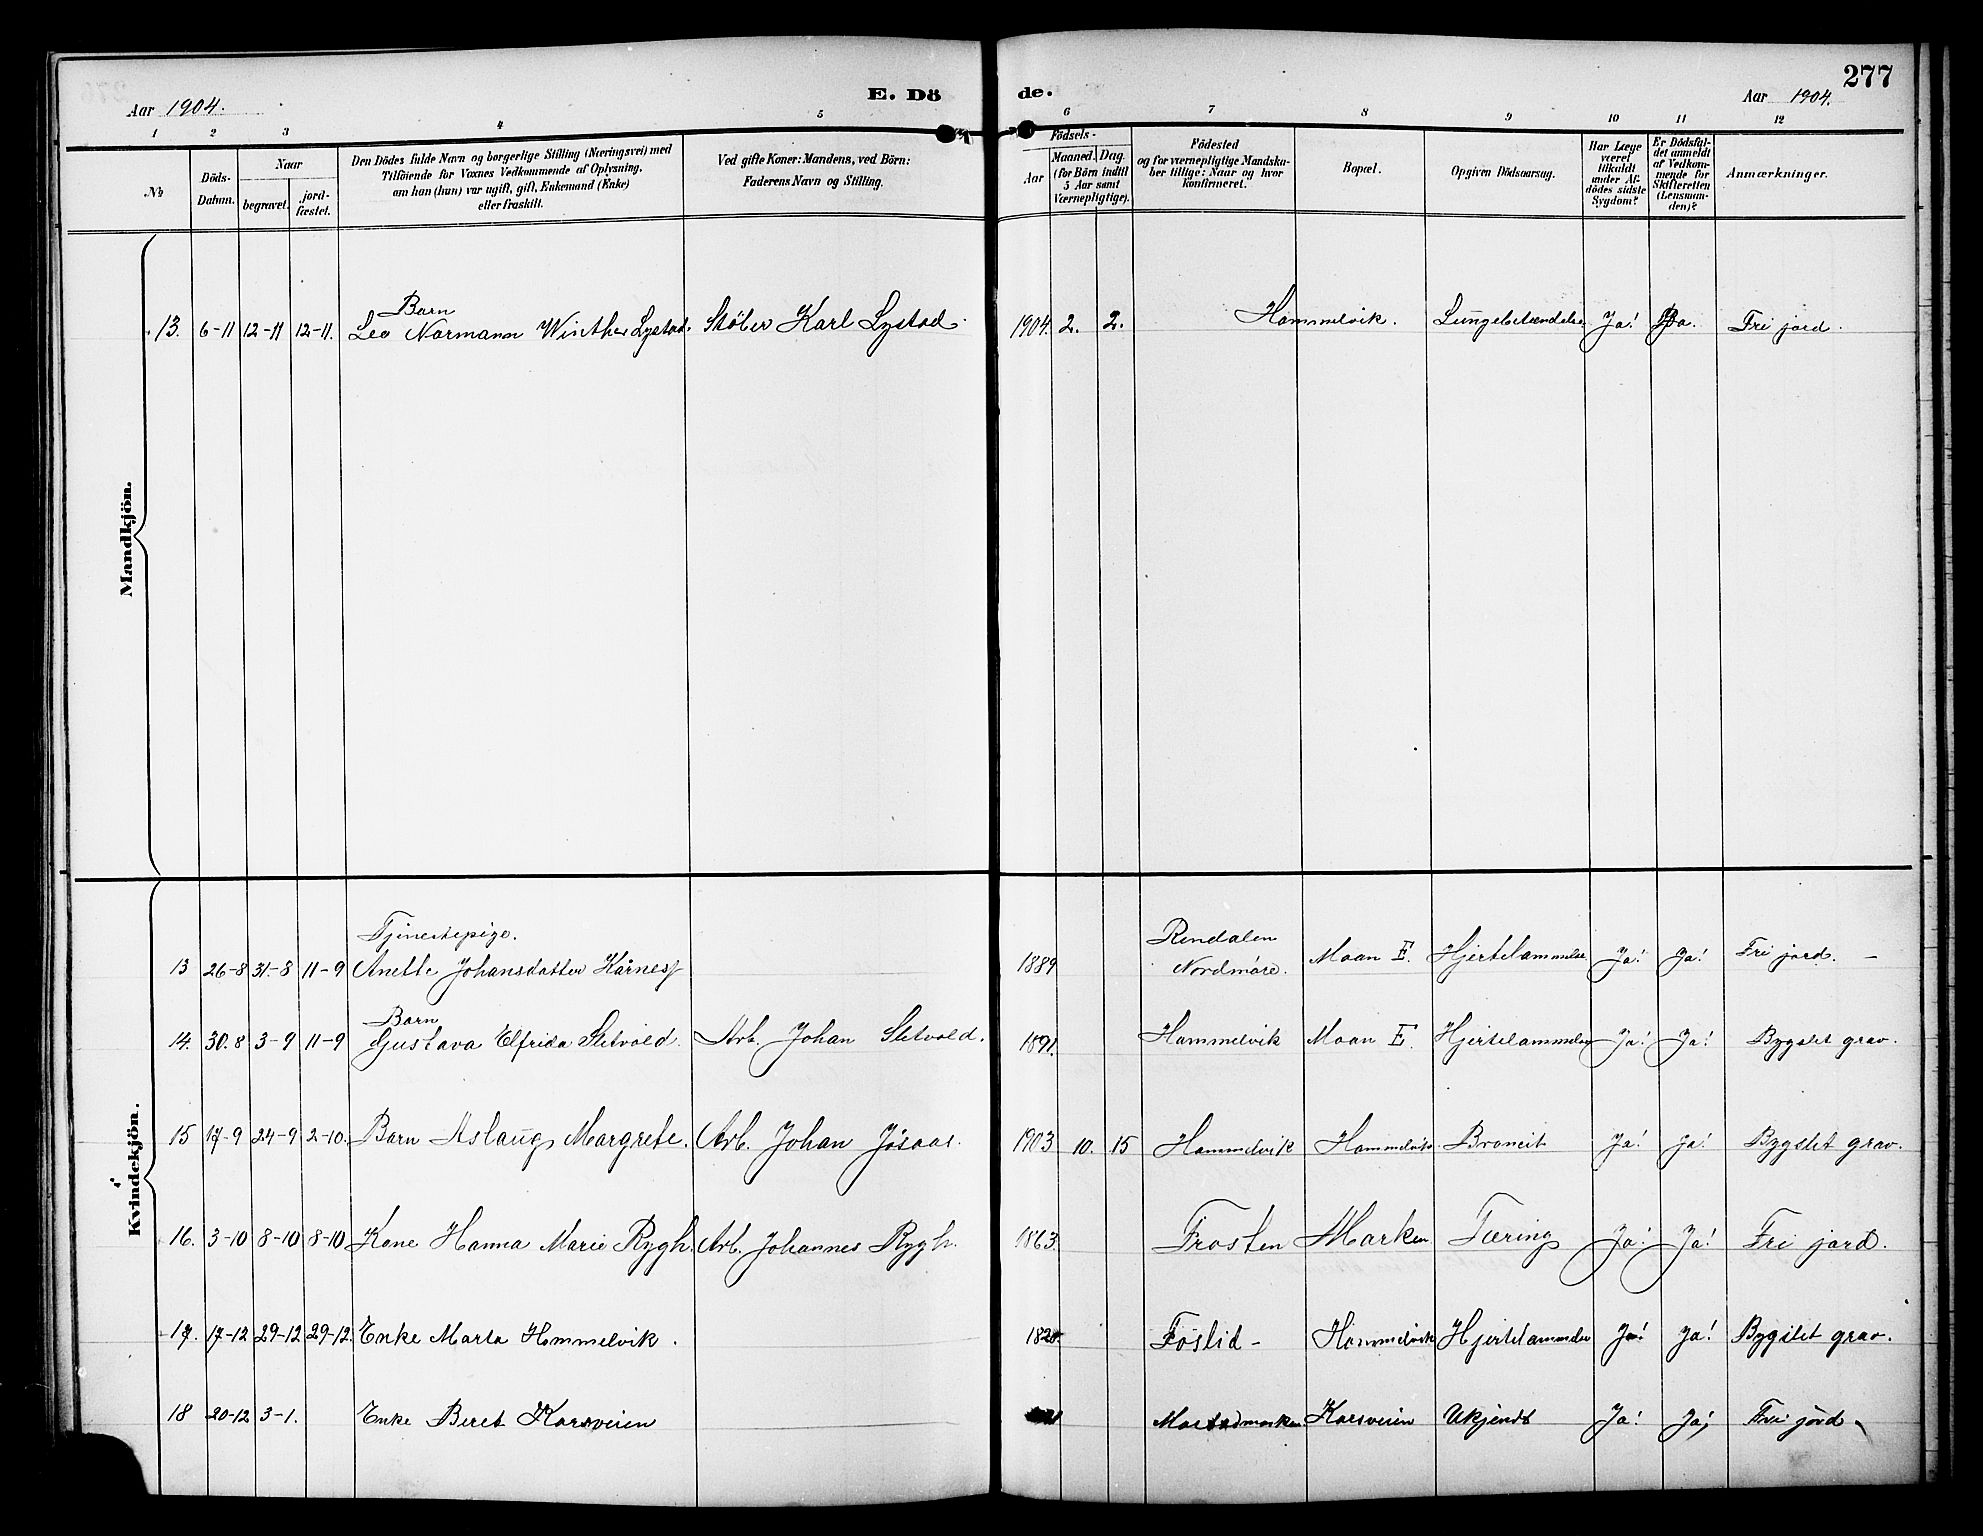 277
Aar 1904.
E. Dö
de.
Aar 1904.
1 2 3 4 5 6 7 8 9 10 11 12
№
Döds-
Datum.
Naar
begravet.
jord-
fæstet.
Den Dödes fulde Navn og borgerlige Stilling (Næringsvei) med
Tilföiende for Voxnes Vedkommende af Oplysning,
om han (hun) var ugift, gift, Enkemand (Enke)
eller fraskilt.
Ved gifte Koner: Mandens, ved Börn:
Faderens Navn og Stilling.
Födsels-
Aar
Maaned. Dag.
(for Börn indtil
5 Aar samt
Værnepligtige).
Födested
og for værnepligtige Mandska-
ber tillige: Naar og hvor
konfirmeret.
Bopæl.
Opgiven Dödsaarsag.
Har Læge
været
tilkaldt
under Af-
dödes sidste
Sygdom?
Er Dödsfal-
det anmeldt
af Vedkom-
mende for
Skifteretten
(Lensman-
den)?
Anmærkninger.
Mandkjön.
Barn
13. 6-11 12-11 12-11. Leo Normann Winther Lystad. Støber Karl Lystad. 1904. 2. 2. Hommelvik. Lungebetændelse Ja! Ja. Fri jord.
Kvindekjön.
Tjenestepige. Rendalen
13 26-8 31-8 11-9 Anette Johansdatter Kårnes 1889 Nordmøre. Moan E. Hjertelammelse Ja! Ja! Fri jord. —
Barn
14. 30.8 3-9 11-9 Gustava Elfrida Sletvold. Arb. Johan Sletvold. 1891. Hommelvik Moan E. Hjertelammelse Ja! Ja! Bygslet grav.
15 17-9 24-9 2-10. Barn Aslaug Margrete. Arb. Johan Jøsaas. 1903 10. 15 Hommelvik Hommelvik. Broncit Ja! Ja! Bygslet grav.
16. 3-10 8-10 8-10 Kone Hanna Marie Rygh. Arb. Johannes Rygh. 1863. Frosten Marken. Tæring Ja! Ja! Fri jord.
17. 17-12 29-12 29-12. Enke Marta Hommelvik. Fóslid – Hommelvik Hjertelammelse Ja! Ja! Bygslet grav.
18 20-12 3-1. Enke Beret Karsveien Mostadmarken Karsveien Ukjendt Ja! Ja! Fri jord